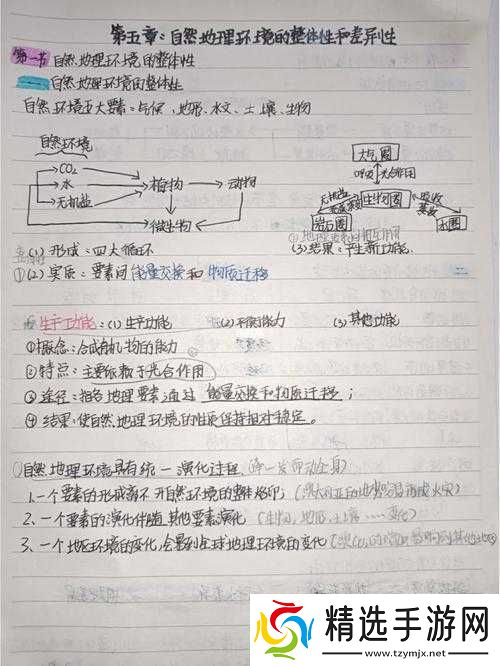 第五章：自然地理环境的整体性和差异性
第一节 自然地理环境的整体性
一 自然地理环境的整体性
自然环境五大要素：气候、地形、水文、土壤、生物
自然环境
CO₂
水
无机盐
植物
动物
微生物
大气圈
呼吸 光合作用
无机盐
生物圈
吸收
蒸腾
岩石圈
水圈
(1) 形成：四大循环
(3) 结果：产生新功能
(2) 实质：要素间能量交换和物质迁移
生产功能：(1) 生产功能 (2) 平衡能力 (3) 其他功能
①概念：合成有机物的能力
②特点：主要依赖于光合作用
③途径：相各地理要素通过能量交换和物质迁移；
④结果：使自然地理环境的性质保持相对稳定。
自然地理环境具有统一演化过程（牵一发而动全身）
1.一个要素的形成离不开自然环境的整体烙印；
2.一个要素的演化伴随其他要素演化（生物、地形、土壤……变化）
3.一个地区环境的变化，会影响到全球地理环境的变化
精选手游网
www.tzymjx.net.net